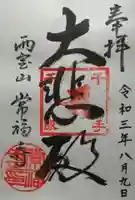 奉拝
令和三年八月九日
大悲殿
西雲山
常福寺